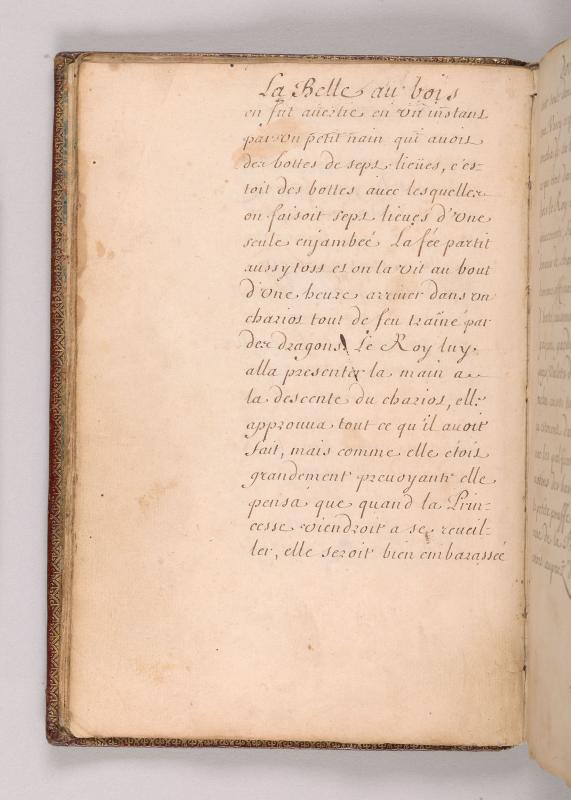 La Belle au bois
en fut auertie en vn instant
par vn petit nain qui auoit
des bottes de sept lieües, c'es-
toit des bottes auec lesquelles
on faisoit sept lieues d'vne
seule enjambeé La fée partit
aussytost et on la vit au bout
d'vne heure arriuer dans vn
chariot tout de feu traîné par
des dragons. Le Roy luy
alla presenter la main a
la descente du chariot, elle
approuua tout ce qu'il auoit
fait, mais comme elle etoit
grandement preuoyante elle
pensa que quand la Prin-
cesse viendroit a se reueil-
ler, elle seroit bien embarasseé